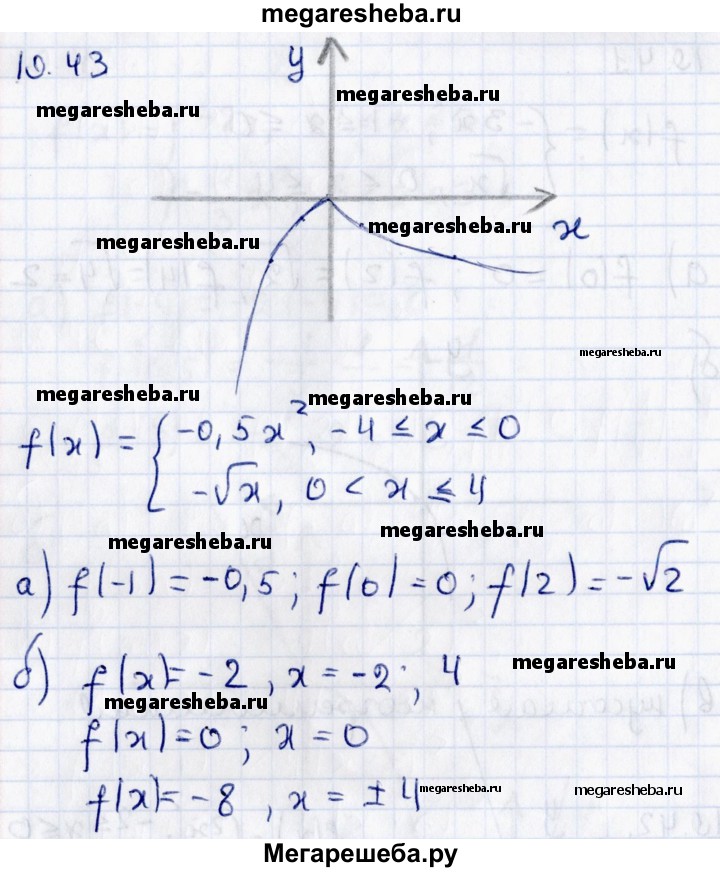 megaresheba.ru
10.43
y
megaresheba.ru
megaresheba.ru
megaresheba.ru
megaresheba.ru
x
megaresheba.ru
megaresheba.ru
megaresheba.ru
f(x) = { -0,5x², -4 ≤ x ≤ 0
-√x, 0 < x ≤ 4
megaresheba.ru
megaresheba.ru
а) f(-1) = -0,5; f(0) = 0; f(2) = -√2
б) f(x) = -2, x = -2; 4
megaresheba.ru
megaresheba.ru
f(x) = 0; x = 0
f(x) = -8, x = ±4
megaresheba.ru
megaresheba.ru
Мегарешеба.ру